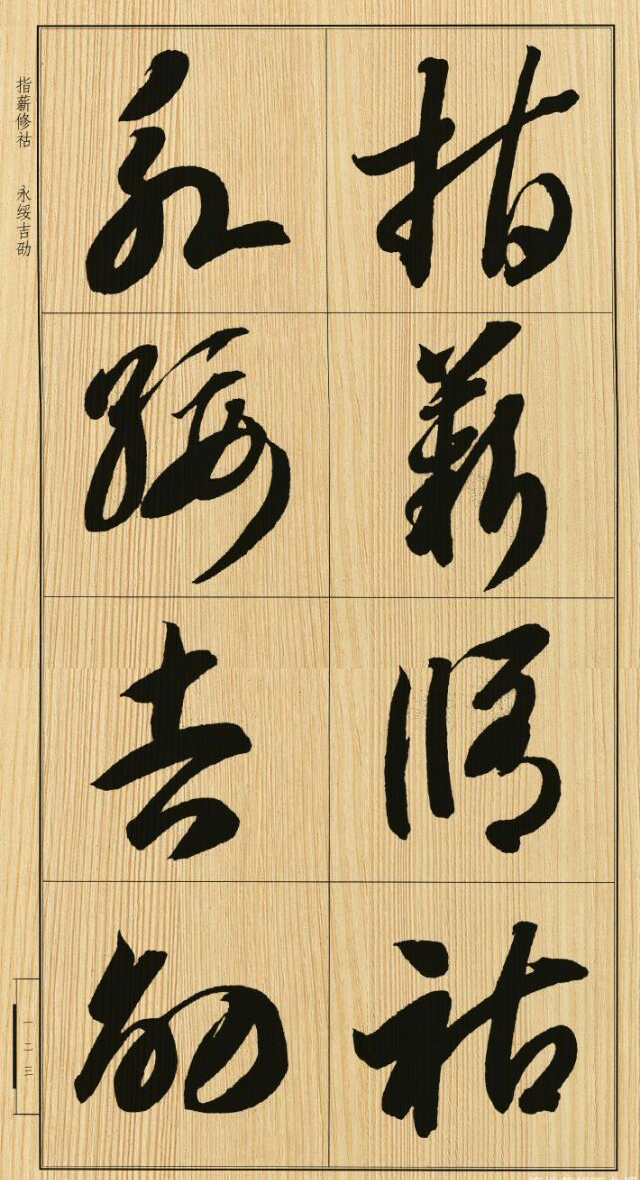 指薪修祜
永绥吉劭
指薪修祜 永绥吉劭
一二三